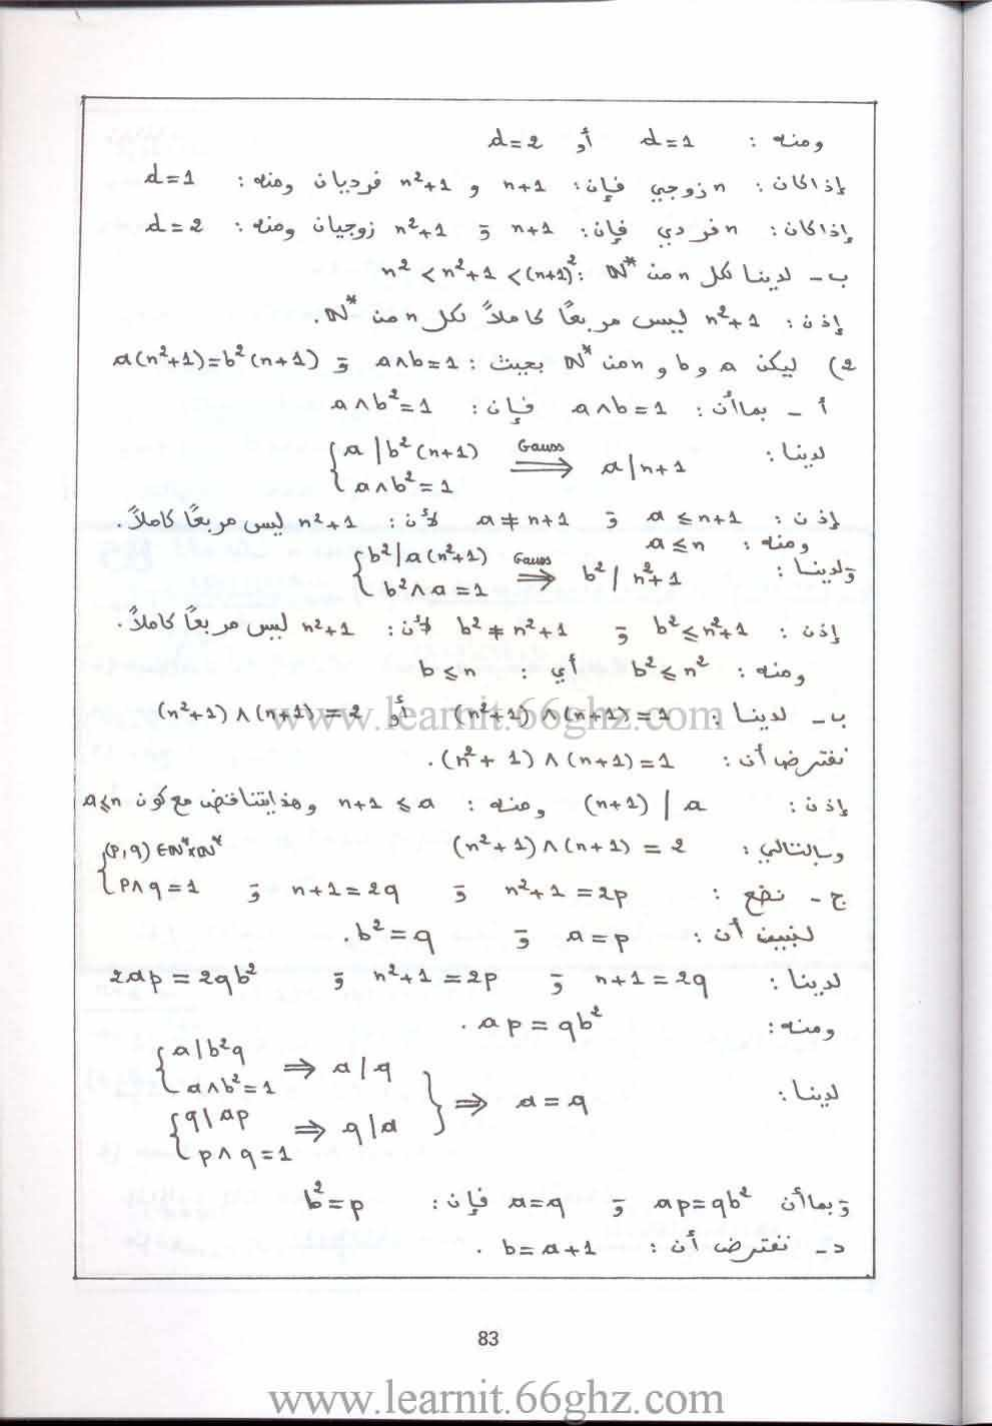 ومنه : d=1 أو d=2
إذا كان : n زوجي فإن : n+1 و n²+1 فرديان ومنه : d=1
إذا كان : n فردي فإن : n+1 وَ n²+1 زوجيان ومنه : d=2
ب - لدينا لكل n من ℕ* : n² < n²+1 < (n+1)²
إذن : n²+1 ليس مربعًا كاملاً لكل n من ℕ*.
2) ليكن a و b و n من ℕ* بحيث : a∧b=1 وَ a(n²+1)=b²(n+1)
أ - بما أن : a∧b=1 فإن : a∧b²=1
لدينا : { a | b²(n+1) , a∧b²=1 Gauss ⟹ a | n+1
إذن : a ≤ n+1 وَ a ≠ n+1 لأن : n²+1 ليس مربعًا كاملاً.
ومنه : a ≤ n
وَلدينا : { b² | a(n²+1) , b²∧a=1 Gauss ⟹ b² | n²+1
إذن : b² ≤ n²+1 وَ b² ≠ n²+1 لأن : n²+1 ليس مربعًا كاملاً.
ومنه : b² ≤ n² أي : b ≤ n
ب - لدينا : (n²+1)∧(n+1)=1 أو (n²+1)∧(n+1)=2
www.learnit.66ghz.com
نفترض أن : (n²+1)∧(n+1)=1.
إذن : (n+1) | a ومنه : n+1 ≤ a وهذا يتناقض مع كون a≤n
وبالتالي : (n²+1)∧(n+1) = 2
ج - نضع : n²+1=2p وَ n+1=2q وَ { (p,q)∈ℕ*×ℕ* , p∧q=1
لنبين أن : a=p وَ b²=q.
لدينا : n+1=2q وَ n²+1=2p وَ 2ap=2qb²
ومنه : ap=qb².
لدينا : { a|b²q , a∧b²=1 ⟹ a|q
{ q|ap , p∧q=1 ⟹ q|a } ⟹ a=q
وَبما أن ap=qb² وَ a=q فإن : b²=p
د - نفترض أن : b=a+1 .
83
www.learnit.66ghz.com